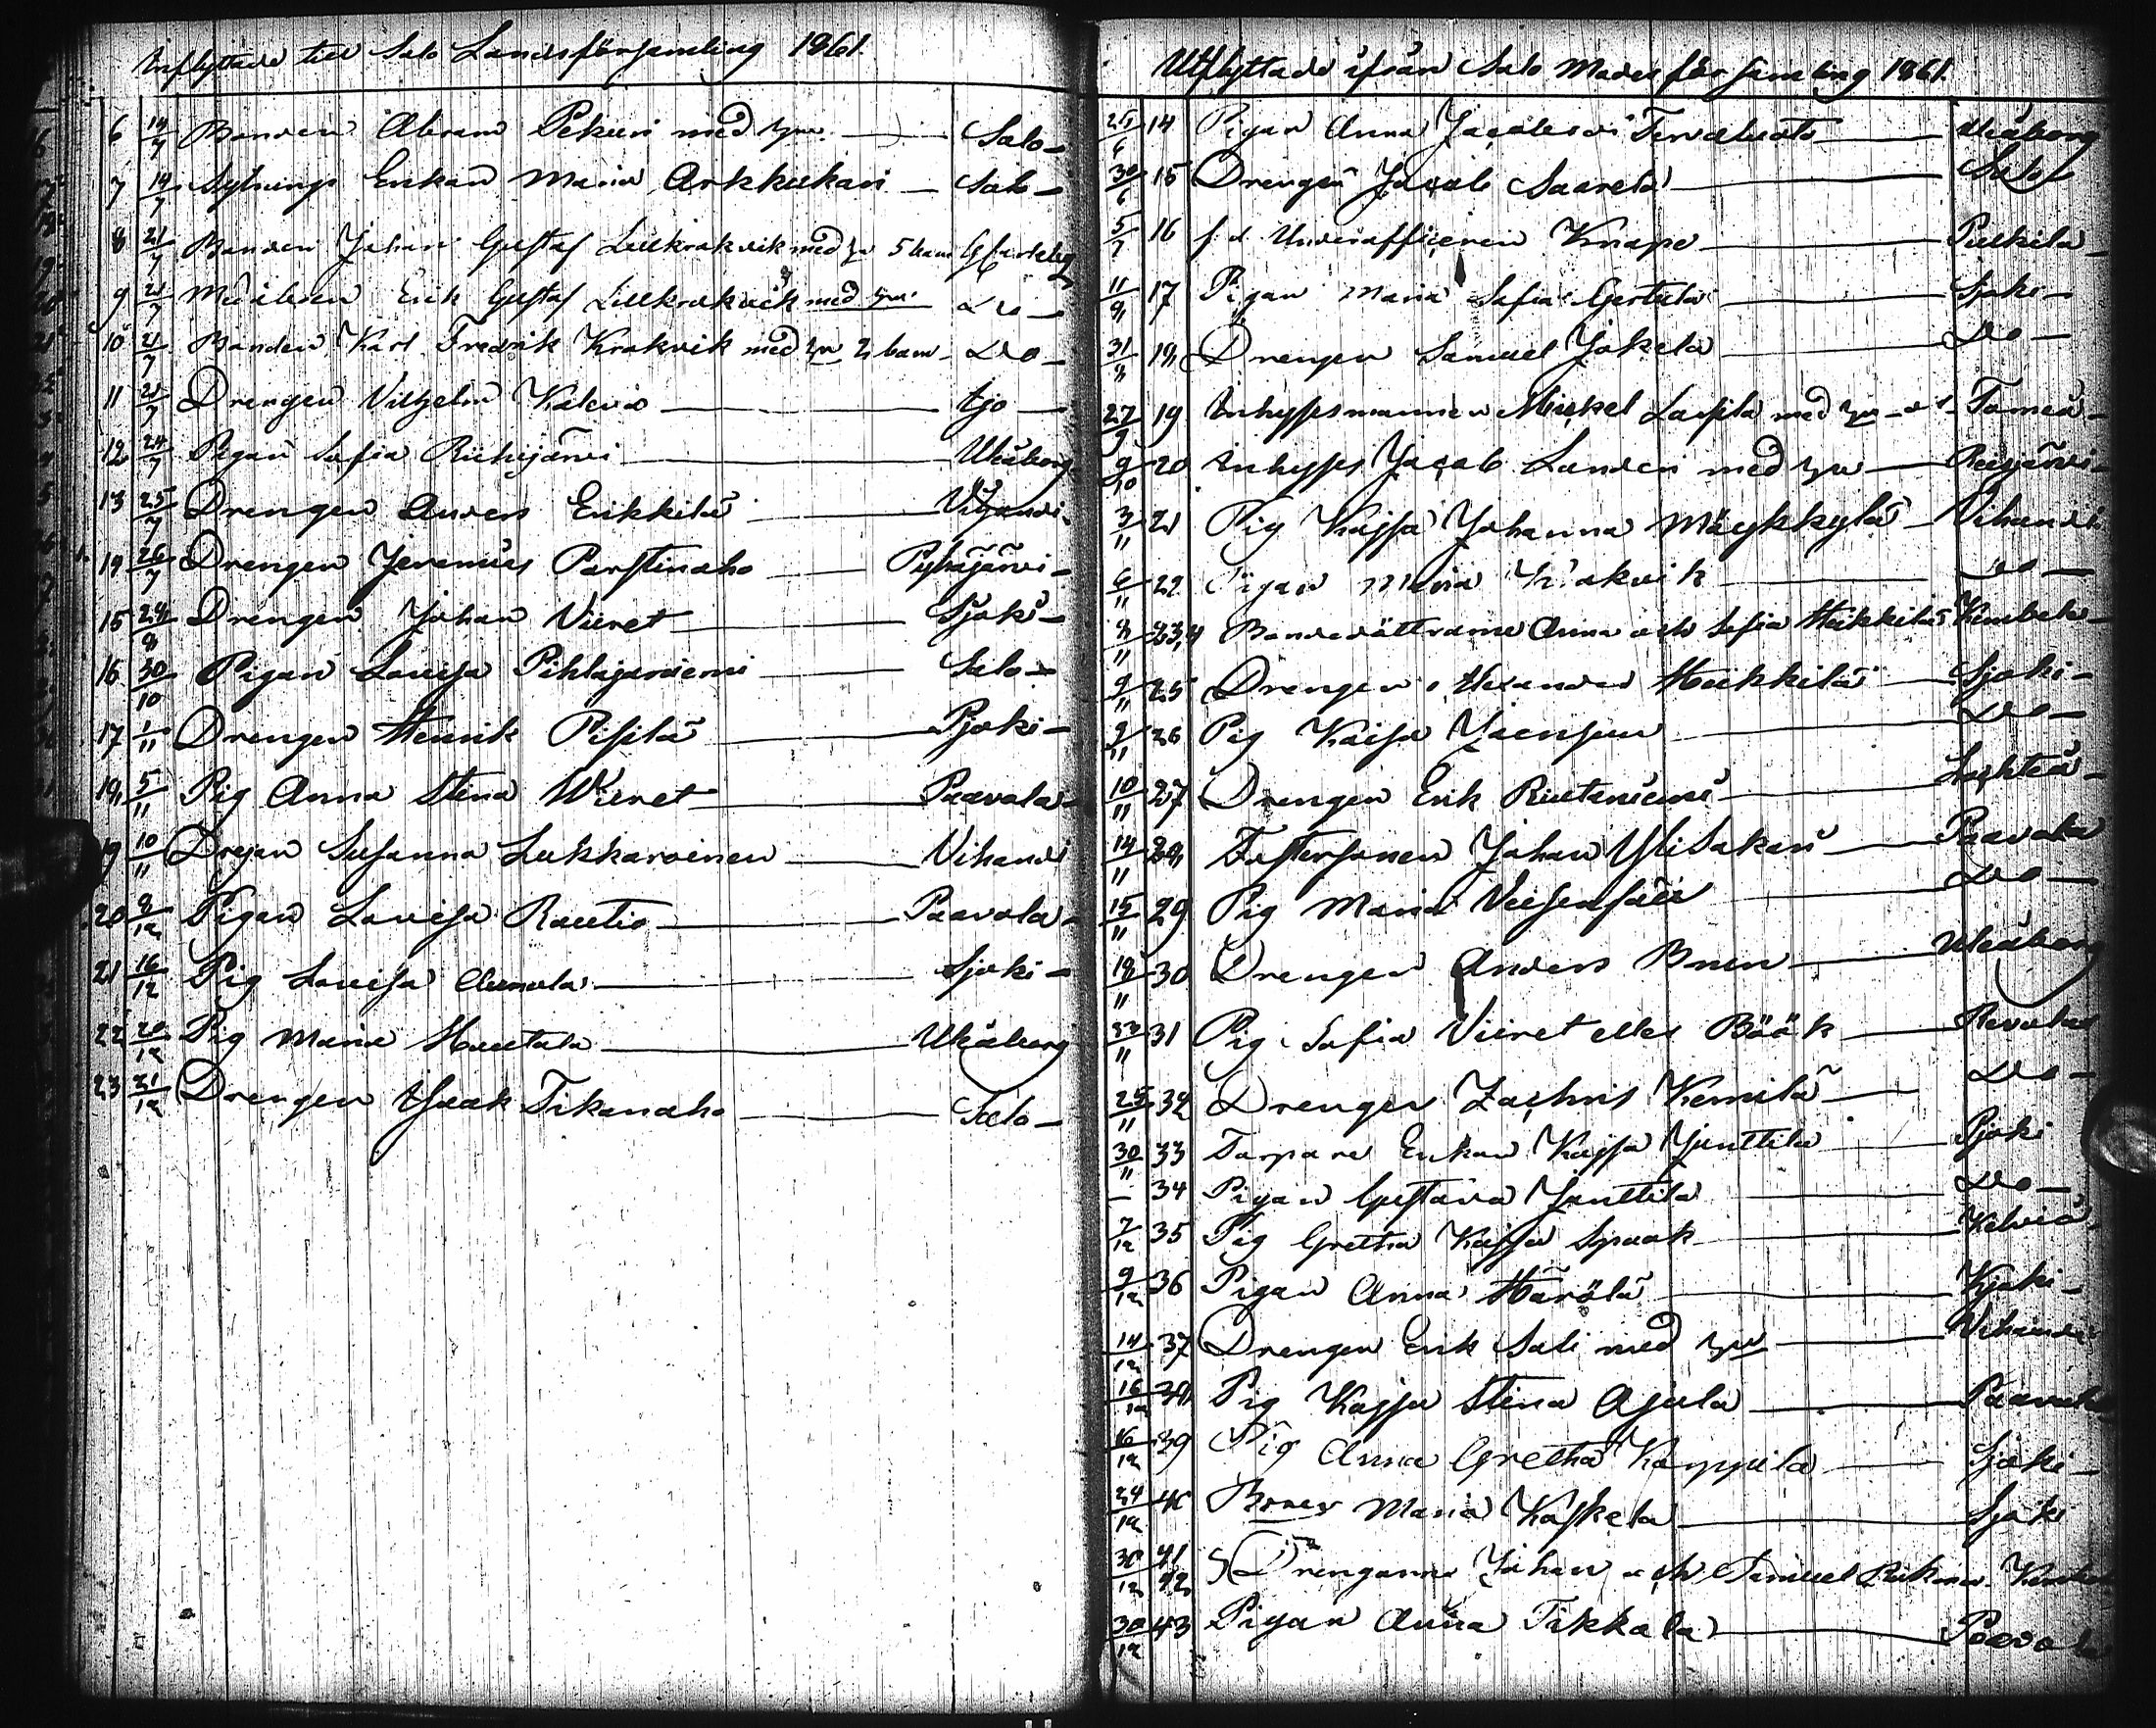 Inflyttade till Salo Landsförsamling 1861.
6 14/7 Bonden Abram Pekuri med hu Salo
7 14/7 Sytnings Enkan Maria Arkkukari Salo
8 21/7 Bonden Johan Gustaf Lillkrakvik med hu 5 barn
9 21/7 Erik Gustaf Lillkrakvik med hu Do
10 21/7 Bonden Karl Fredrik Krakvik med hu 2 barn Do
11 21/7 Drengen Vilhelm Kaleva Ijo
12 24/7 Pigan Sofia Ruhijärvi Uleåborg
13 25/7 Drengen Anders Erikkilä Vihandi
14 26/7 Drengen Jeremias Parstinaho Pyhäjärvi
15 24/8 Drengen Johan Viiret Sjoki
16 30/10 Pigan Lovisa Pihlajaniemi Salo
17 1/11 Drengen Henrik Pisilä Pjoki
18 5/11 Pig Anna Stena Wiiret Paavola
19 10/11 Susanna Lukkaroinen Vihandi
20 8/12 Pigan Lovisa Rautio Paavola
21 16/12 Pig Lovisa Annola Sjoki
22 20/12 Pig Maria Hautala Uleåborg
23 31/12 Drengen Isaak Tikanaho Salo
Utflyttade ifrån Salo Moderförsamling 1861.
25/6 14 Pigan Anna Tervaluoto Uleåborg
30/6 15 Drengen Jacob Saarela Salo
5/7 16 f.d. Underofficeren Knape Pulkila
11/8 17 Pigan Maria Sofia Gertula Sjoki
31/8 18 Drengen Samuel Jokela Do
27/9 19 Inhyssmannen Mickel Lassila med hu Torneå
9/10 20 Inhyses Jacob Landen med hu Reisjärvi
3/11 21 Pig Kajsa Johanna Mäykkylä Vihandi
6/11 22 Pigan Maria Krakvik Do
8/11 23,4 Bondedöttrarne Anna och Sofia Heikkilä Kembele
9/11 25 Drengen Alexander Heikkilä Sjoki
9/11 26 Pig Kaisa Do
10/11 27 Drengen Erik Rautaniemi Lochteå
14/11 28 Fostersonen Johan YliSakari Paavola
15/11 29 Pig Maria Do
18/11 30 Drengen Anders Brun Uleåborg
11 31 Pig Sofia Viiret eller Böök Revolax
25/11 32 Drengen Zachris Kemilä Do
30/11 33 Torpare Enkan Kajsa Junttila Pjoki
34 Pigan Gustava Junttila Do
7/12 35 Pig Gretha Kajsa Spaak Kelviå
9/12 36 Pigan Anna Härölä Kjoki
14/12 37 Drengen Erik Sali med hu Vihandi
16/12 38 Pig Kajsa Stina Ojula Paavola
16/12 39 Pig Anna Gretha Karppila Sjoki
24/12 40 Maria Koskela Sjoki
30/12 41 42 Drengarne Johan och Samuel
30/12 43 Pigan Anna Tikkala Paavola